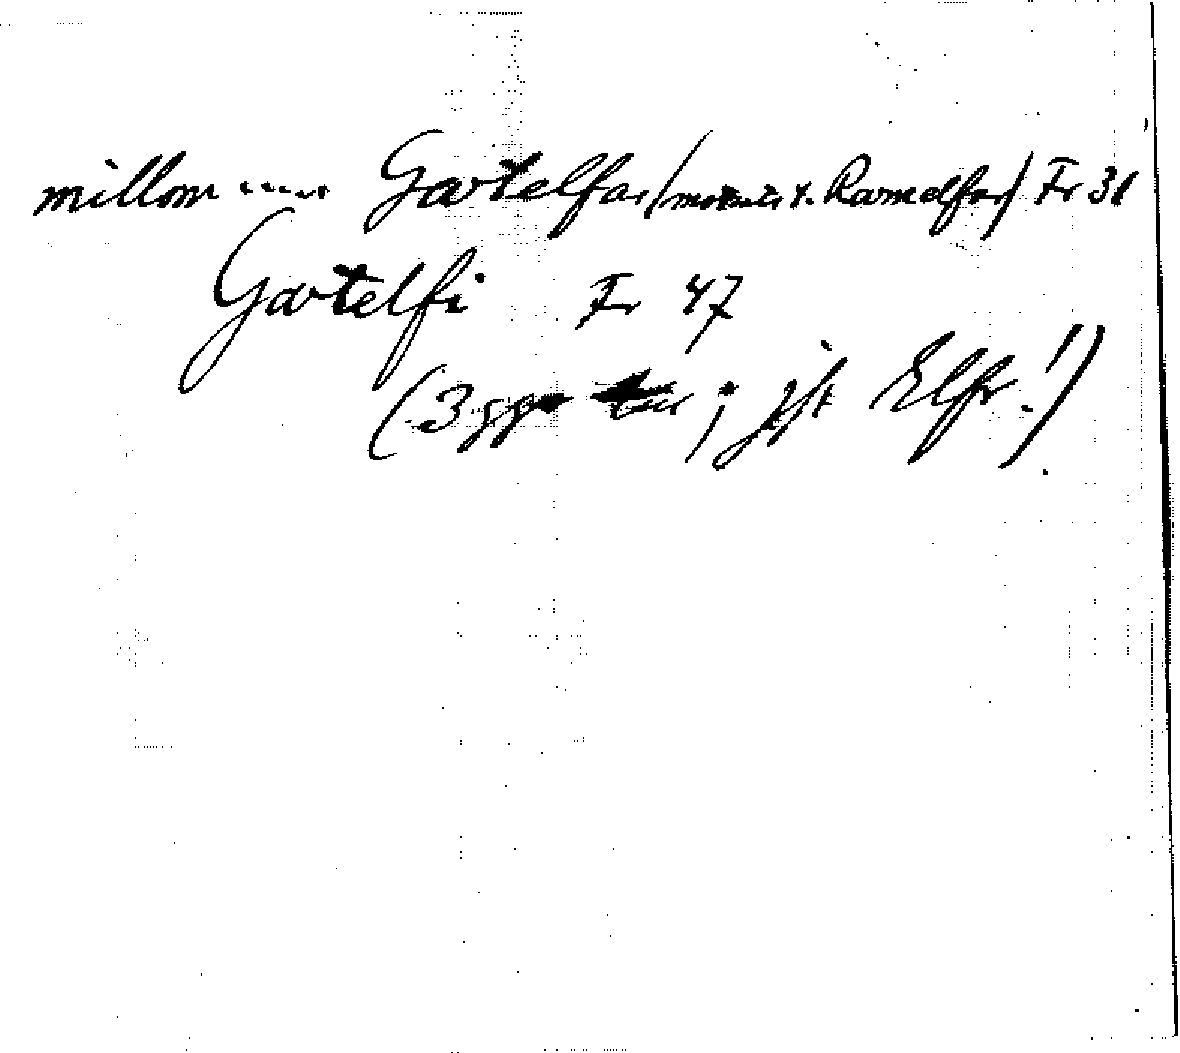 millom .... Gartelfar (motsatt Ramelfar) Fr 31
Gartelfi Fr 47
(3 ; jft Elfr.!)